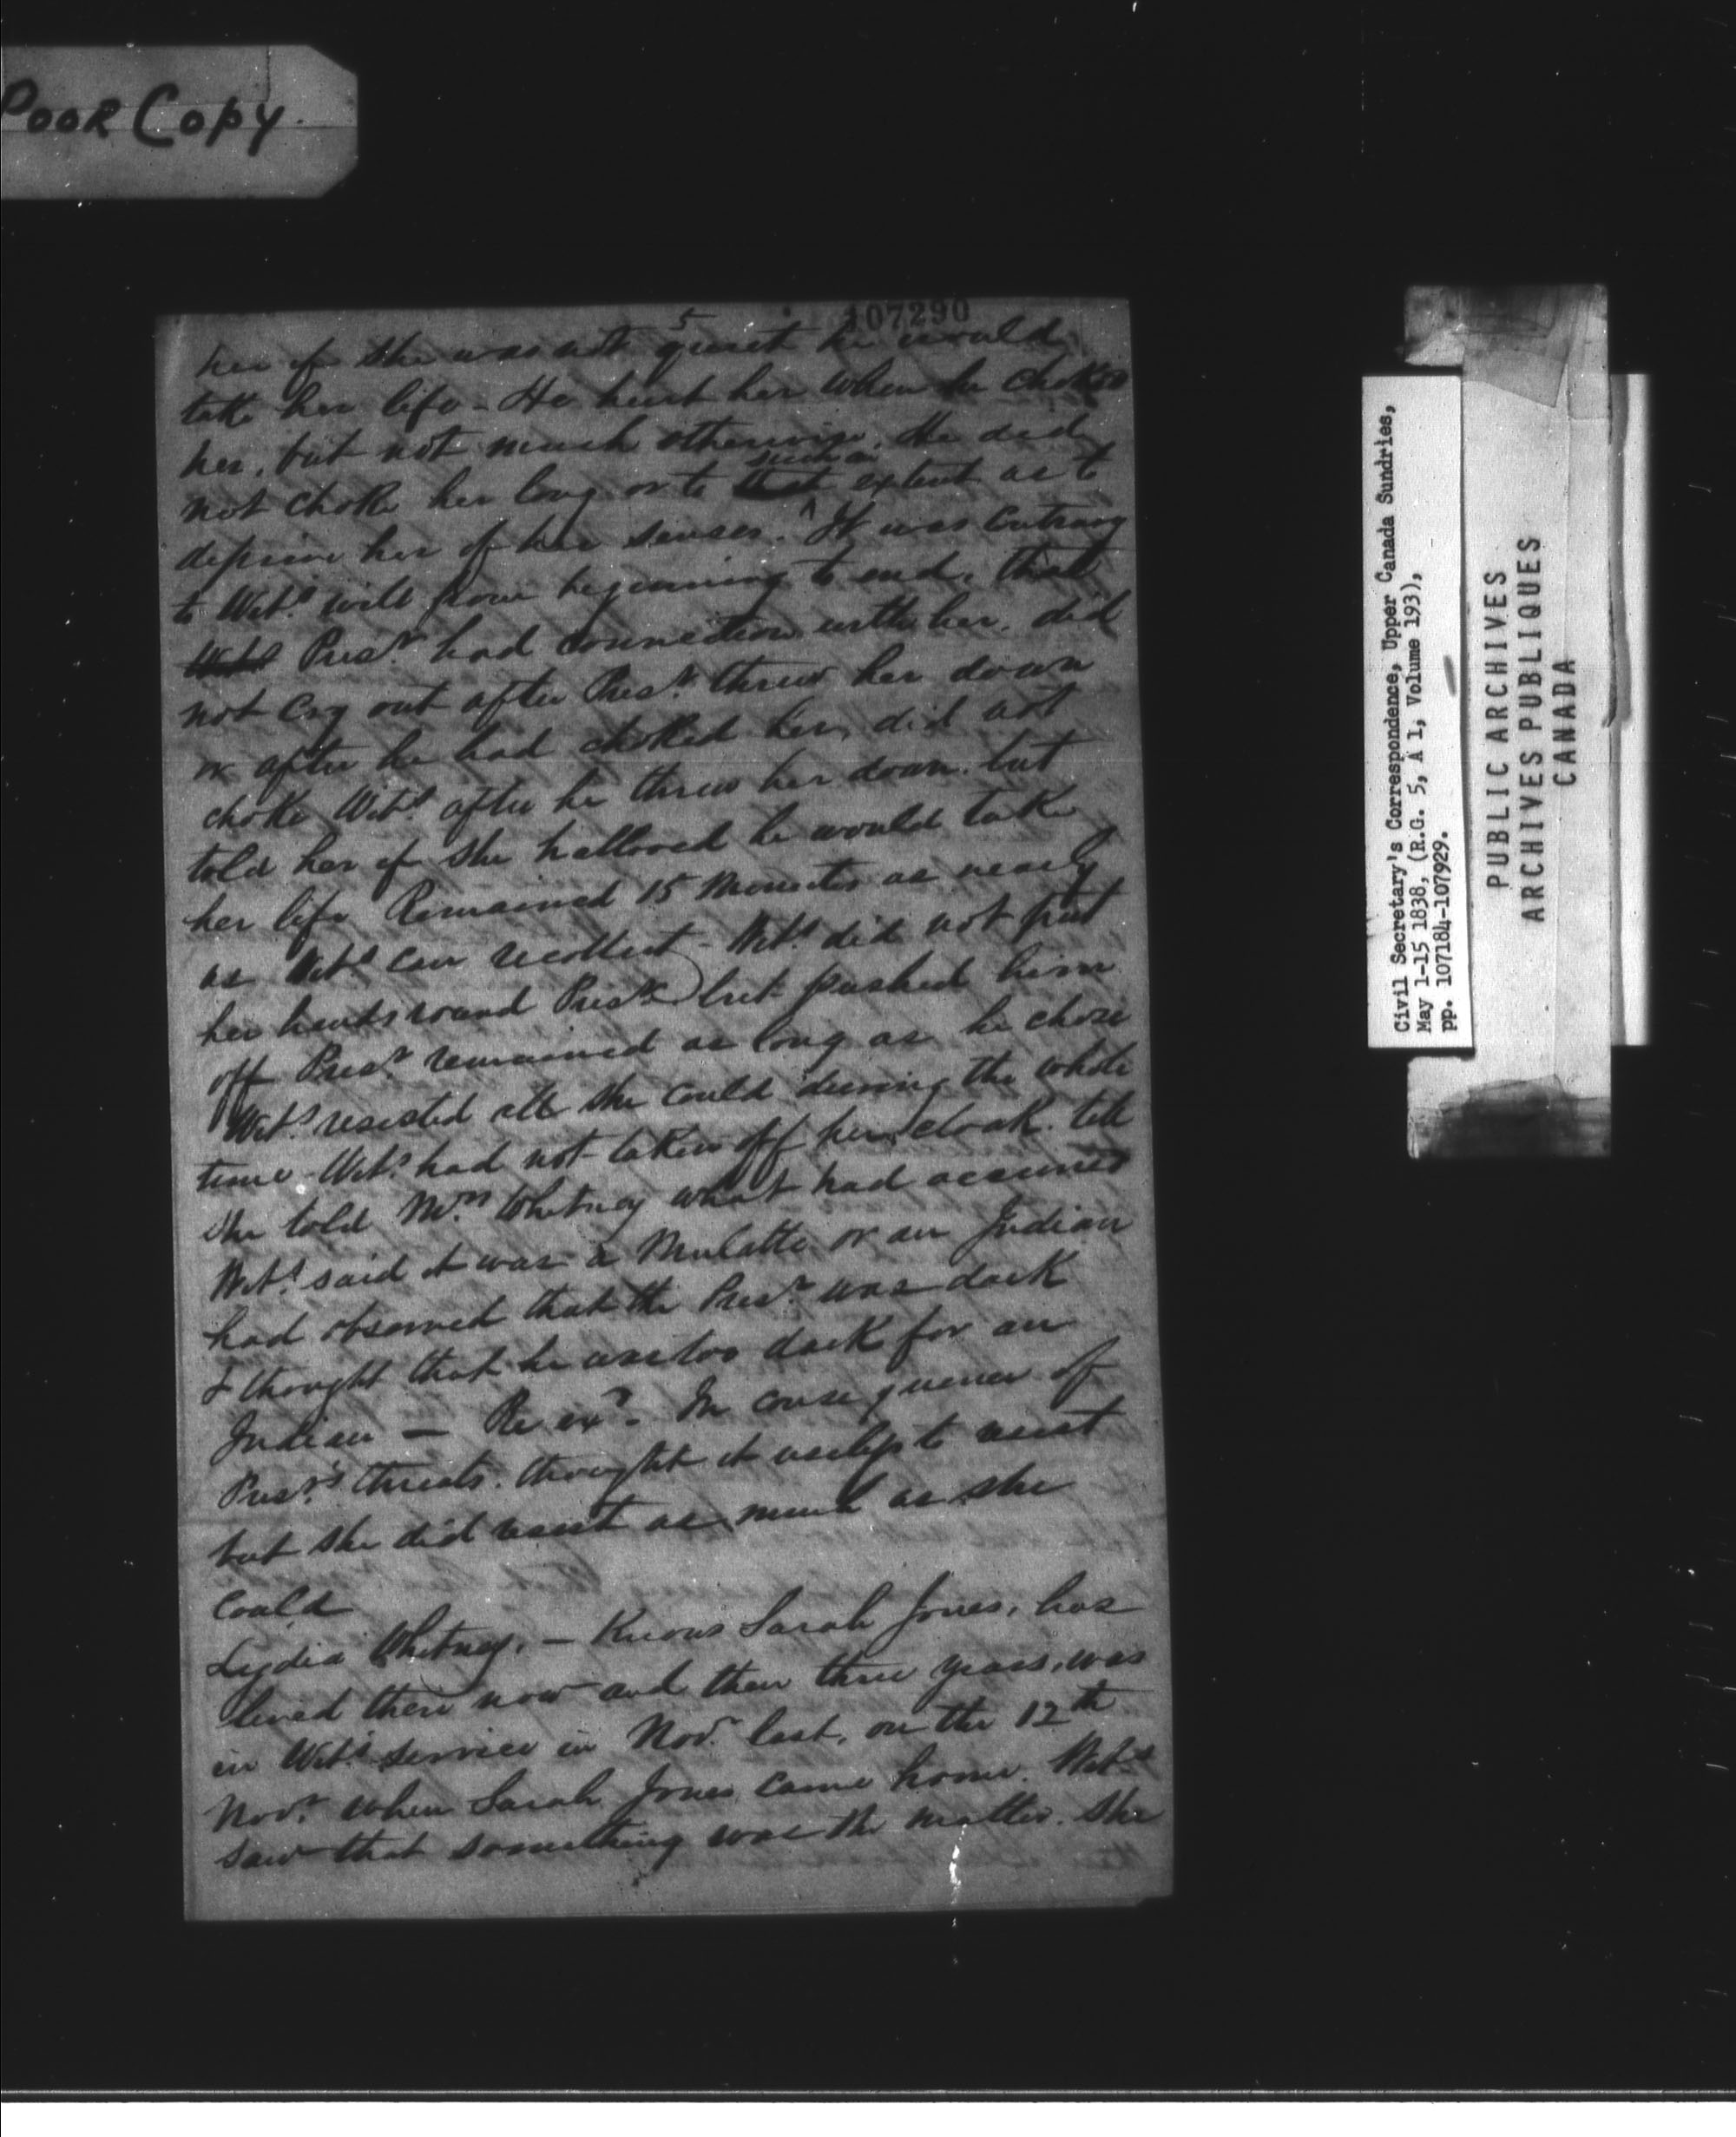 Poor Copy.
5
107290
her if she was not quiet he would
take her life - He hurt her when he choked
her, but not much otherwise. He did
such an
not choke her long or to that extent as to
deprive her of her senses. It was contrary
to Wits. will from beginning to end, that
Wits Prisr. had connection with her, did
not cry out after Prisr. threw her down
or after he had choked her, did not
choke Wits. after he threw her down. but
told her if she hallooed he would take
her life Remained 15 Minutes as nearly
as Wits can recollect - Wits. did not put
her hands round Prisr. but pushed him
off Prisr. remained as long as he chose
Wits. resisted all she could during the whole
time - Wits. had not taken off her cloak till
she told Mrs. Whitney what had occurred
Wits. said it was a Mulatto or an Indian
had observed that the Prisr. was dark
& thought that he was too dark for an
Indian — Re exd. In consequence of
Prisr.'s threats. thought it useless to resist
but she did resist as much as she
could
Lydia Whitney. — Knows Sarah Jones, has
lived there now and then three years, was
in Wits. service in Novr. last, on the 12th
Novr. when Sarah Jones came home. Wits
saw that something was the matter. She
Civil Secretary's Correspondence, Upper Canada Sundries,
May 1-15 1838, (R.G. 5, A 1, Volume 193),
pp. 107184-107929.
PUBLIC ARCHIVES
ARCHIVES PUBLIQUES
CANADA